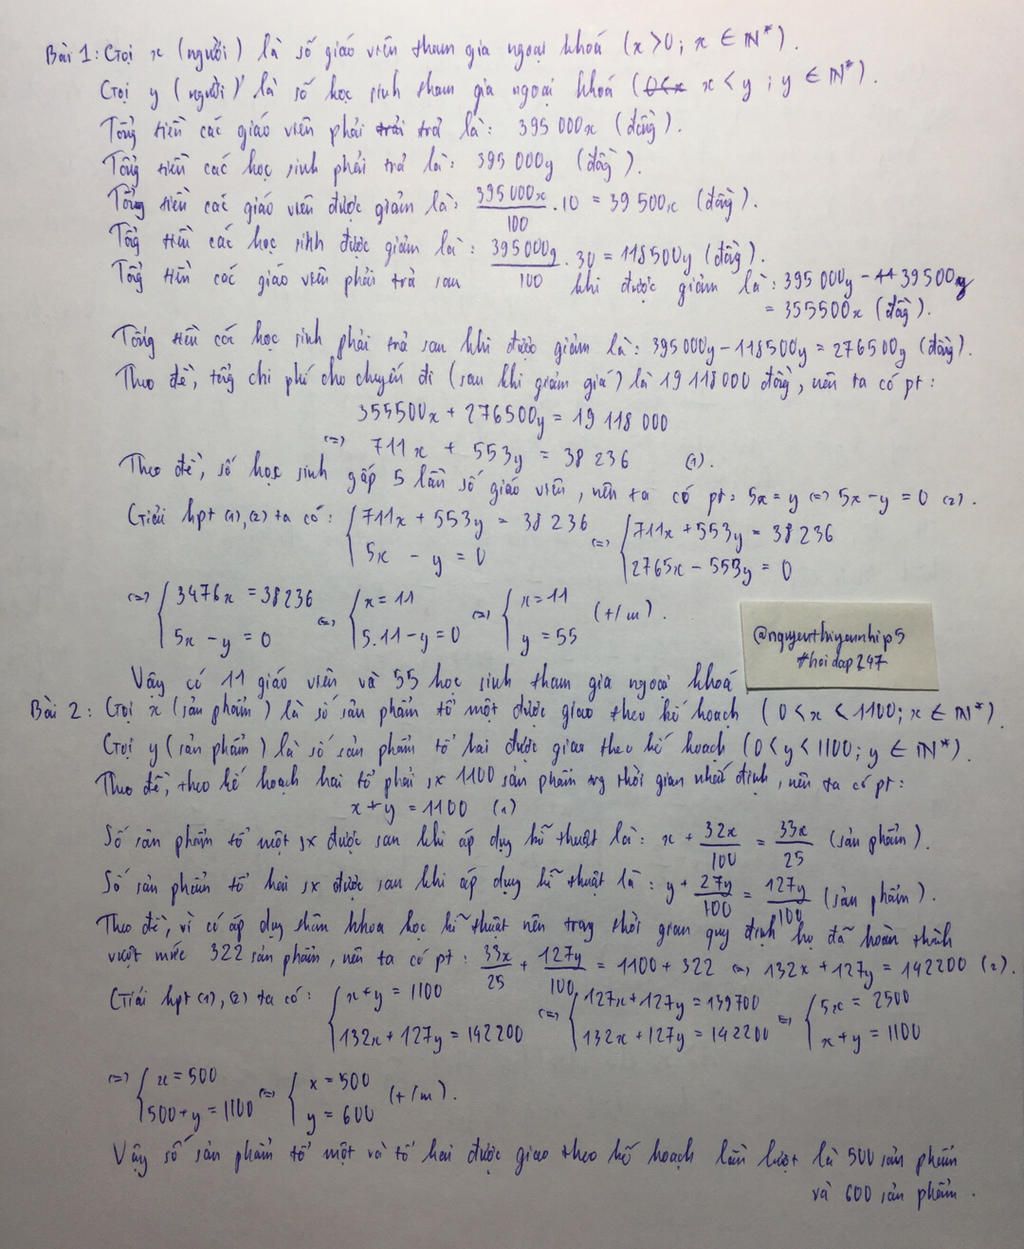 Bài 1: Gọi x (người) là số giáo viên tham gia ngoại khoá (x > 0; x ∈ ℕ*).
Gọi y (người) là số học sinh tham gia ngoại khoá (0<x x < y ; y ∈ ℕ*).
Tổng tiền các giáo viên phải trải trả là: 395 000x (đồng).
Tổng tiền các học sinh phải trả là: 395 000y (đồng).
Tổng tiền các giáo viên được giảm là: 395 000x/100 . 10 = 39 500x (đồng).
Tổng tiền các học sinh được giảm là: 395 000y/100 . 30 = 118 500y (đồng).
Tổng tiền các giáo viên phải trả sau khi được giảm là: 395 000y - 39 500
= 355500x (đồng).
Tổng tiền các học sinh phải trả sau khi được giảm là: 395 000y - 118 500y = 276500y (đồng).
Theo đề, tổng chi phí cho chuyến đi (sau khi giảm giá) là 19 118 000 đồng, nên ta có pt:
355500x + 276500y = 19 118 000
(=) 711x + 553y = 38 236 (1).
Theo đề, số học sinh gấp 5 lần số giáo viên, nên ta có pt: 5x = y (=) 5x - y = 0 (2).
Giải hpt (1), (2) ta có: { 711x + 553y = 38 236 (=) { 711x + 553y = 38236
5x - y = 0 2765x - 553y = 0
(=) { 3476x = 38236 (=) { x = 11 (=) { x = 11 (t/m).
5x - y = 0 5.11 - y = 0 y = 55
@nguyenthiyennhip5
#hoidap247
Vậy có 11 giáo viên và 55 học sinh tham gia ngoại khoá
Bài 2: Gọi x (sản phẩm) là số sản phẩm tổ một được giao theo kế hoạch (0 < x < 1100; x ∈ ℕ*)
Gọi y (sản phẩm) là số sản phẩm tổ hai được giao theo kế hoạch (0 < y < 1100; y ∈ ℕ*).
Theo đề, theo kế hoạch hai tổ phải sx 1100 sản phẩm trg thời gian nhất định, nên ta có pt:
x + y = 1100 (1)
Số sản phẩm tổ một sx được sau khi áp dụng kĩ thuật là: x + 32x/100 = 33x/25 (sản phẩm).
Số sản phẩm tổ hai sx được sau khi áp dụng kĩ thuật là: y + 27y/100 = 127y/100 (sản phẩm).
Theo đề, vì có áp dụng thêm khoa học kĩ thuật nên trong thời gian quy định họ đã hoàn thành
vượt mức 322 sản phẩm, nên ta có pt: 33x/25 + 127y/100 = 1100 + 322 (=) 132x + 127y = 142200 (2).
Giải hpt (1), (2) ta có: { x + y = 1100 (=) { 127x + 127y = 139700 (=) { 5x = 2500
132x + 127y = 142200 132x + 127y = 142200 x + y = 1100
(=) { x = 500 (=) { x = 500 (t/m).
500 + y = 1100 y = 600
Vậy số sản phẩm tổ một và tổ hai được giao theo kế hoạch lần lượt là 500 sản phẩm
và 600 sản phẩm.